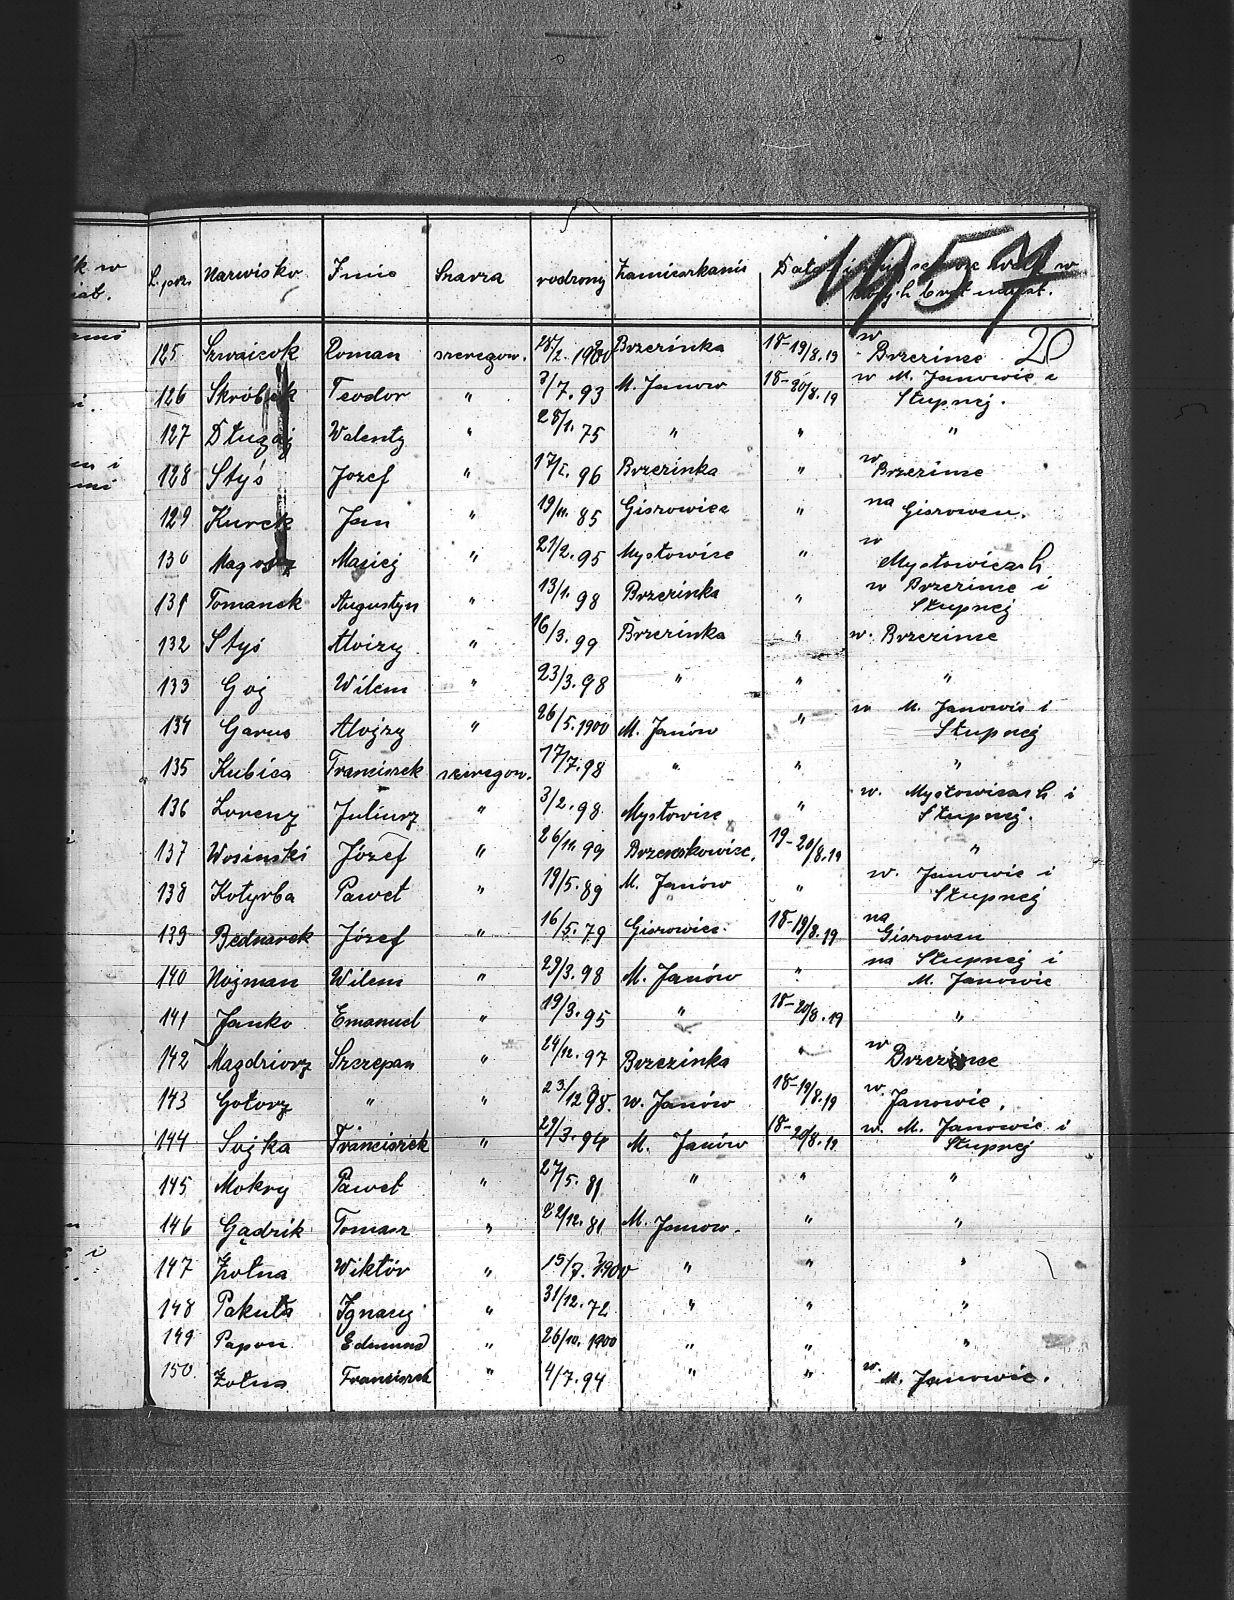 k w
iat.
L. porz. Nazwisko Imie Szarza rodzony Zamieszkanie Data i w
których brał udział.
1957
20
125 Szwaicok Roman szeregow. 1900 Brzezinka 18-19/8.19 w Brzezince
126 Skróbek Teodor " 3/7.93 M. Janow 18-20/8.19 w M. Janowie i Słupnej.
127 Długaj Walenty " 28/1.75 " " "
128 Styś Jozef " 17/I.96 Brzezinka " w Brzezince
129 Kurek Jan " 19/11.85 Giszowiec " na Giszowcu.
130 Maciej " 21/2.95 Mysłowice " w Mysłowicach
131 Tomanek Augustyn " 13/1.98 Brzezinka " w Brzezince i Słupnej
132 Styś Alojzy " 16/3.99 Brzezinka " w. Brzezince
133 Goj Wilem " 23/3.98 " " "
134 Garus Alojzy " 26/5.1900 M. Janów " w M. Janowie i Słupnej
135 Kubica Franciszek szeregow. 17/7.98 " " "
136 Lorenz Juliusz " 3/2.98 Mysłowice " w. Mysłowicach i Słupnej.
137 Wosinski Józef " 26/11.99 Brzenskowice. 19-20/8.19 "
138 Kotyrba Paweł " 19/5.89 M. Janów " w. Janowie i Słupnej
139 Bednarek Józef " 16/5.79 Giszowiec. 18-19/8.19 na Giszowcu
140 Nojman Wilem " 29/3.98 M. Janów " na Słupnej i M. Janowie
141 Janko Emanuel " 19/3.95 " 18-20/8.19 "
142 Magdziorz Szczepan " 24/12.97 Brzezinka " w Brzezince
143 Gołorz " " 23/12.98. w. Janów 18-19/8.19 w Janowie.
144 Sojka Franciszek " 29/3.94 M. Janów 18-20/8.19 w. M. Janowie i Słupnej
145 Mokry Paweł " 27/5.81 " " "
146 Gądzik Tomasz " 22/12.81 M. Janow. " "
147 Żołna Wiktór " 15/7.1900 " " "
148 Pakuła Ignacy " 31/12.72 " " "
149 Papon Edmund " 26/10.1900 " " "
150 Żołna Franciszek " 4/7.94 " " w. M. Janowie.